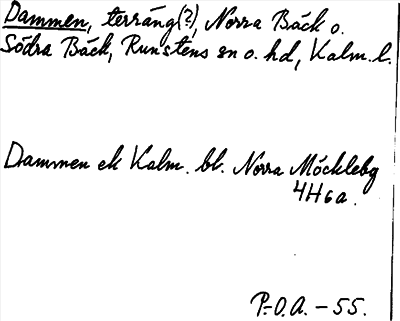 Dammen, terräng(?), Norra Bäck o.
Södra Bäck, Runstens sn o. hd, Kalm. l.
Dammen ek Kalm. bl. Norra Möckleby
4H6a.
P.-O.A. - 55.